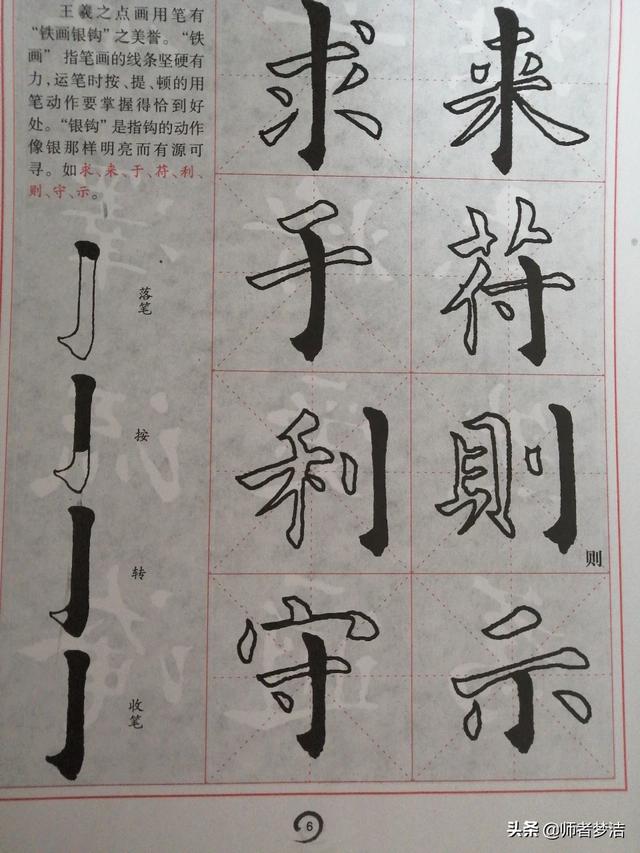 王羲之点画用笔有
“铁画银钩”之美誉。“铁
画” 指笔画的线条坚硬有
力,运笔时按、提、顿的用
笔动作要掌握得恰到好
处。“银钩”是指钩的动作
像银那样明亮而有源可
寻。如求、来、于、符、利、
则、守、示。
落笔
按
转
收笔
求 来
于 符
利 則
则
守 示
6
头条 @师者梦洁